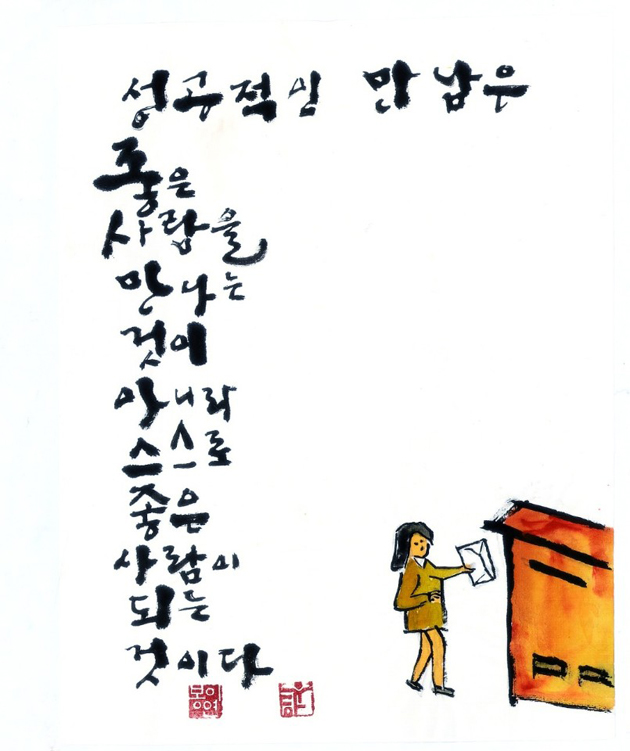 성공적인 만남은
좋은
사람을
만나는
것이
아니라
스스로
좋은
사람이
되는
것이다